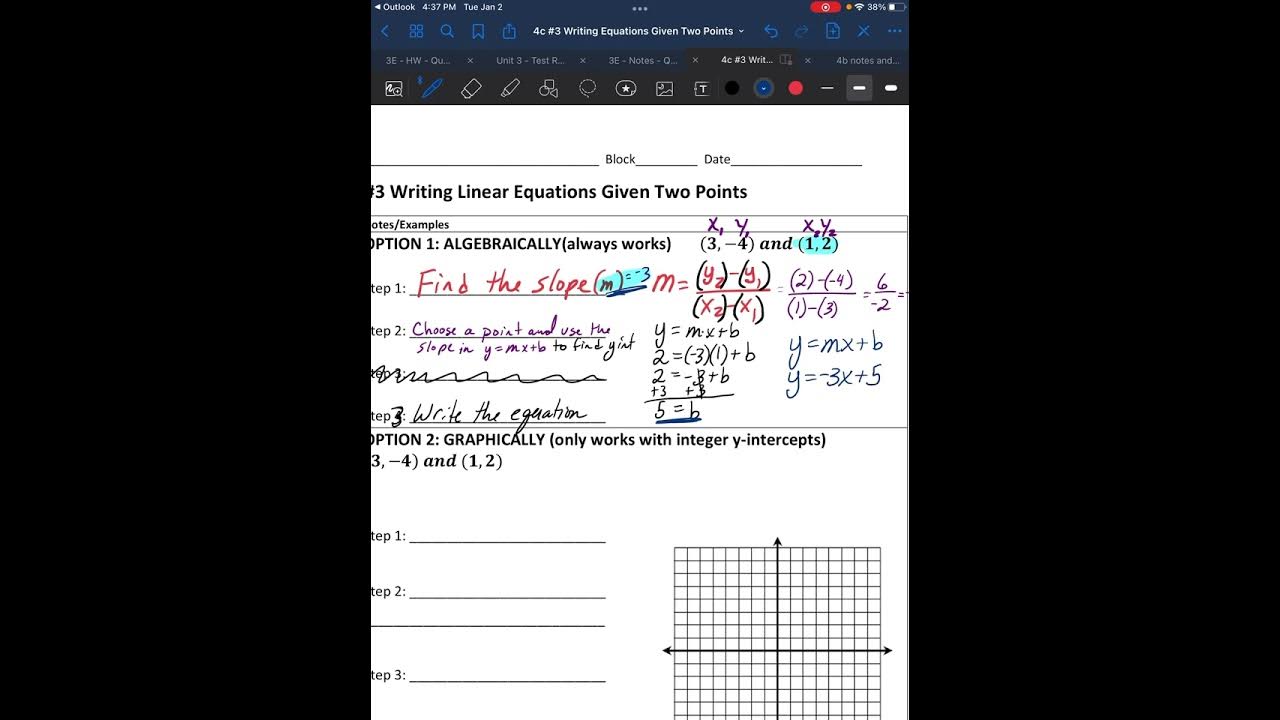 Outlook 4:37 PM Tue Jan 2 38%
4c #3 Writing Equations Given Two Points
3E - HW - Qu... × Unit 3 - Test R... × 3E - Notes - Q... × 4c #3 Writ... × 4b notes and...
Block Date
#3 Writing Linear Equations Given Two Points
otes/Examples
x₁ y₁ x₂ y₂
OPTION 1: ALGEBRAICALLY(always works) (3, −4) and (1, 2)
tep 1: Find the slope (m) = -3 m = (y₂)-(y₁)/(x₂)-(x₁) = (2)-(-4)/(1)-(3) = 6/-2 = -
tep 2: Choose a point and use the
slope in y=mx+b to find y int
y = m·x + b
2 = (-3)(1) + b
2 = -3 + b
+3 +3
5 = b
y = mx + b
y = -3x + 5
tep 3: Write the equation
OPTION 2: GRAPHICALLY (only works with integer y-intercepts)
3, −4) and (1, 2)
tep 1:
tep 2:
tep 3: